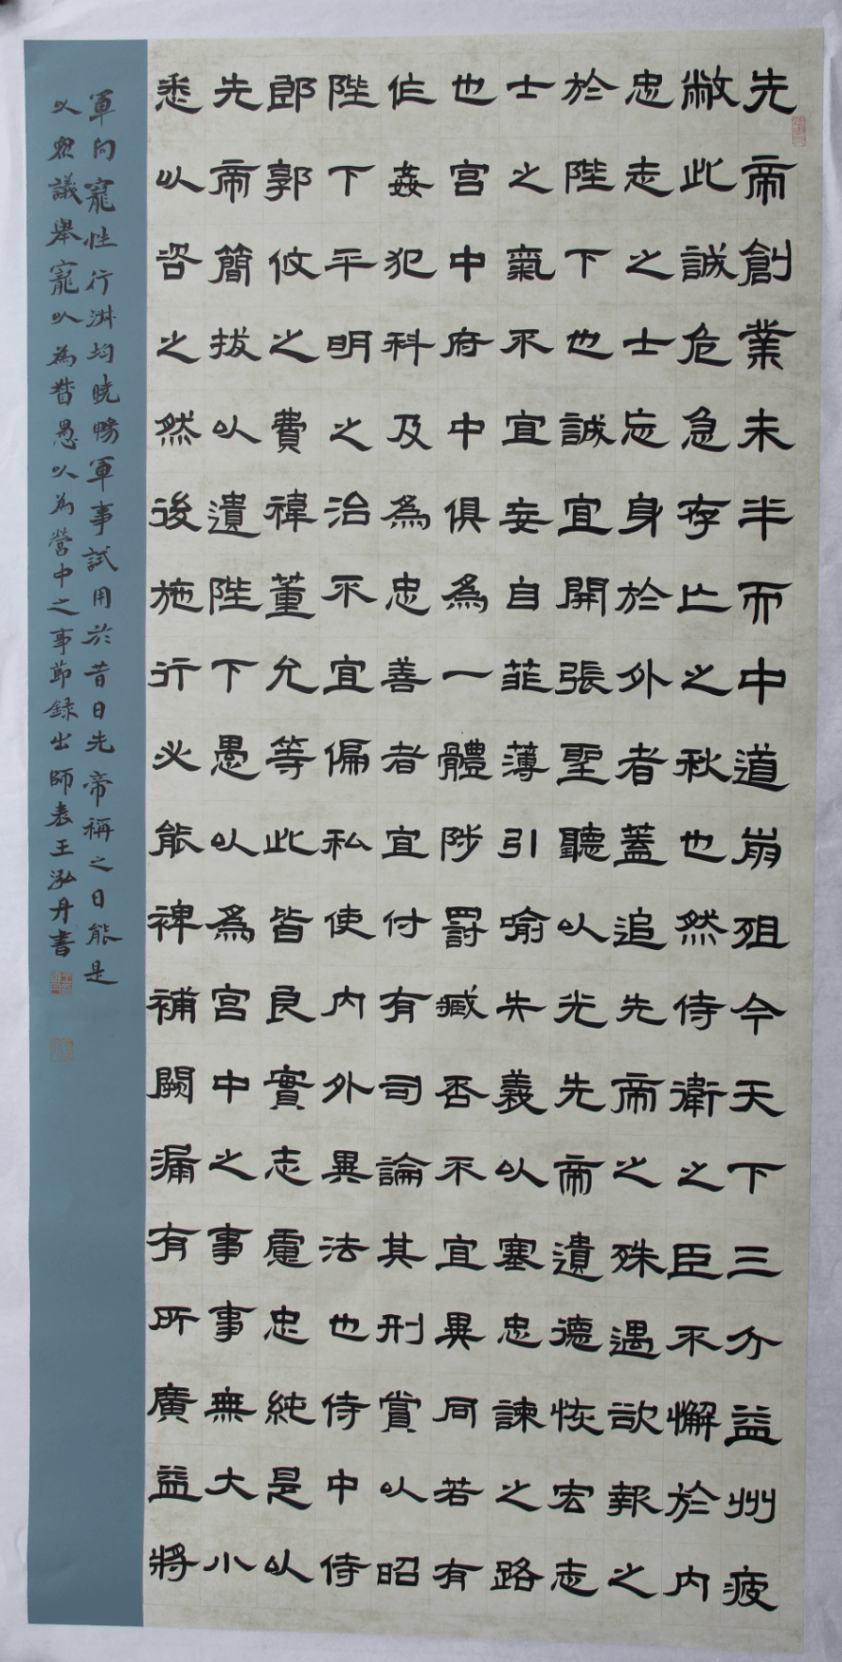 先帝創業未半而中道崩殂今天下三分益州疲
敝此誠危急存亡之秋也然侍衛之臣不懈於內
忠志之士忘身於外者蓋追先帝之殊遇欲報之
於陛下也誠宜開張聖聽以光先帝遺德恢宏志
士之氣不宜妄自菲薄引喻失義以塞忠諫之路
也宮中府中俱爲一體陟罰臧否不宜異同若有
作姦犯科及爲忠善者宜付有司論其刑賞以昭
陛下平明之治不宜偏私使內外異法也侍中侍
郎郭攸之費禕董允等此皆良實志慮忠純是以
先帝簡拔以遺陛下愚以爲宮中之事事無大小
悉以咨之然後施行必能裨補闕漏有所廣益將
軍向寵性行淑均曉暢軍事試用於昔日先帝稱之曰能是
以眾議舉寵以為督愚以為營中之事節録出師表王泓丹書